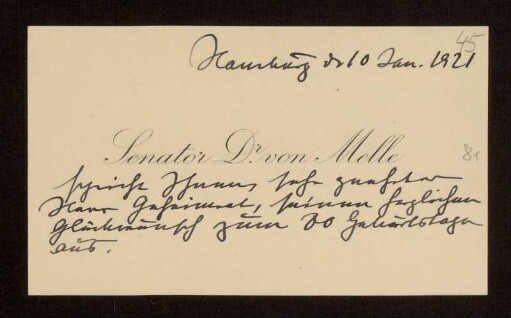 45
Hamburg d 10 Jan. 1921
Senator Dr. von Melle
81
spricht Ihnen, sehr geehrter
Herr Geheimrat, seinen herzlichen
Glückwunsch zum 80 Geburtstage
aus.